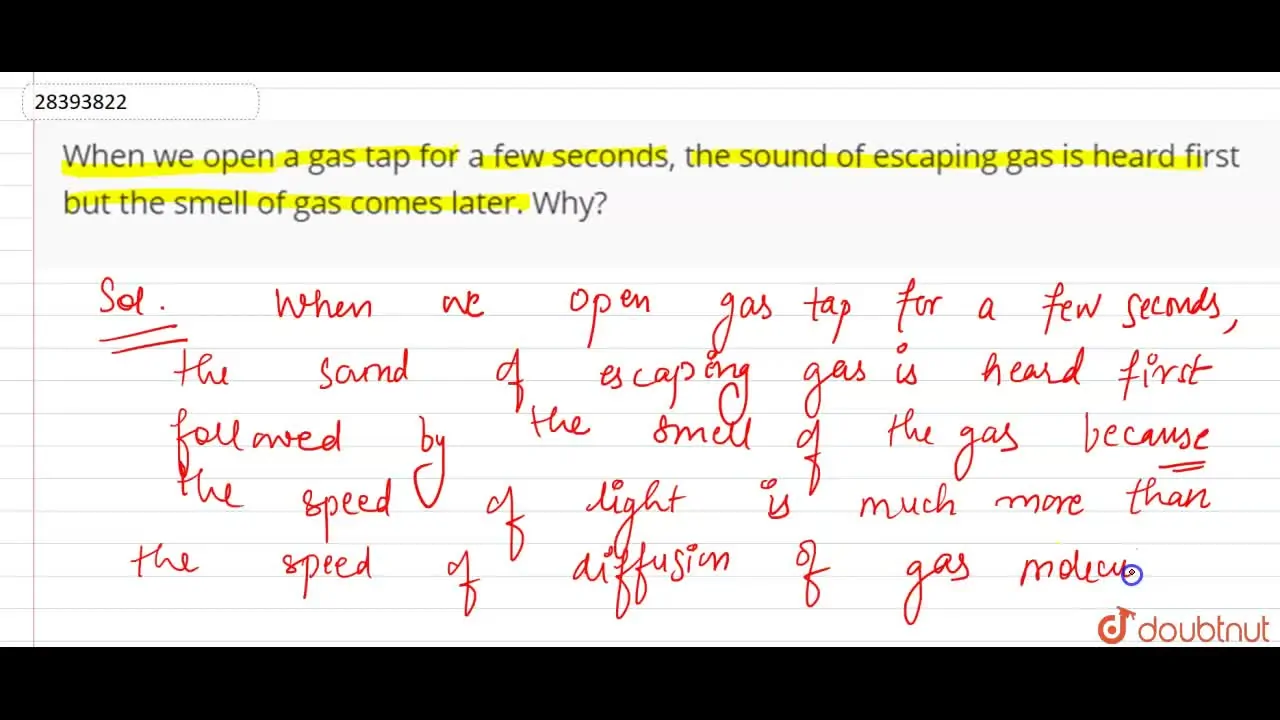 28393822
When we open a gas tap for a few seconds, the sound of escaping gas is heard first
but the smell of gas comes later. Why?
Sol. When we open gas tap for a few seconds,
the sound of escaping gas is heard first
followed by the smell of the gas because
the speed of light is much more than
the speed of diffusion of gas molecu
doubtnut